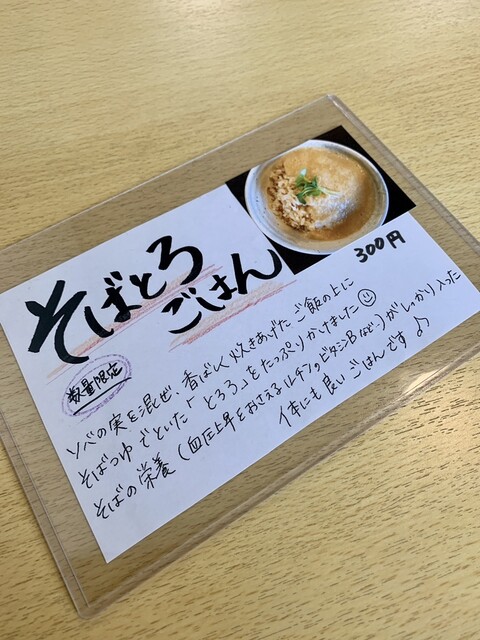 そばとろ
ごはん
300円
数量限定
ソバの実を混ぜ、香ばしく炊きあげたご飯の上に
そばつゆでといた「とろろ」をたっぷりかけました
そばの栄養(血圧上昇をおさえるルチンやビタミンBなど)がしっかり入った
体にも良いごはんです♪